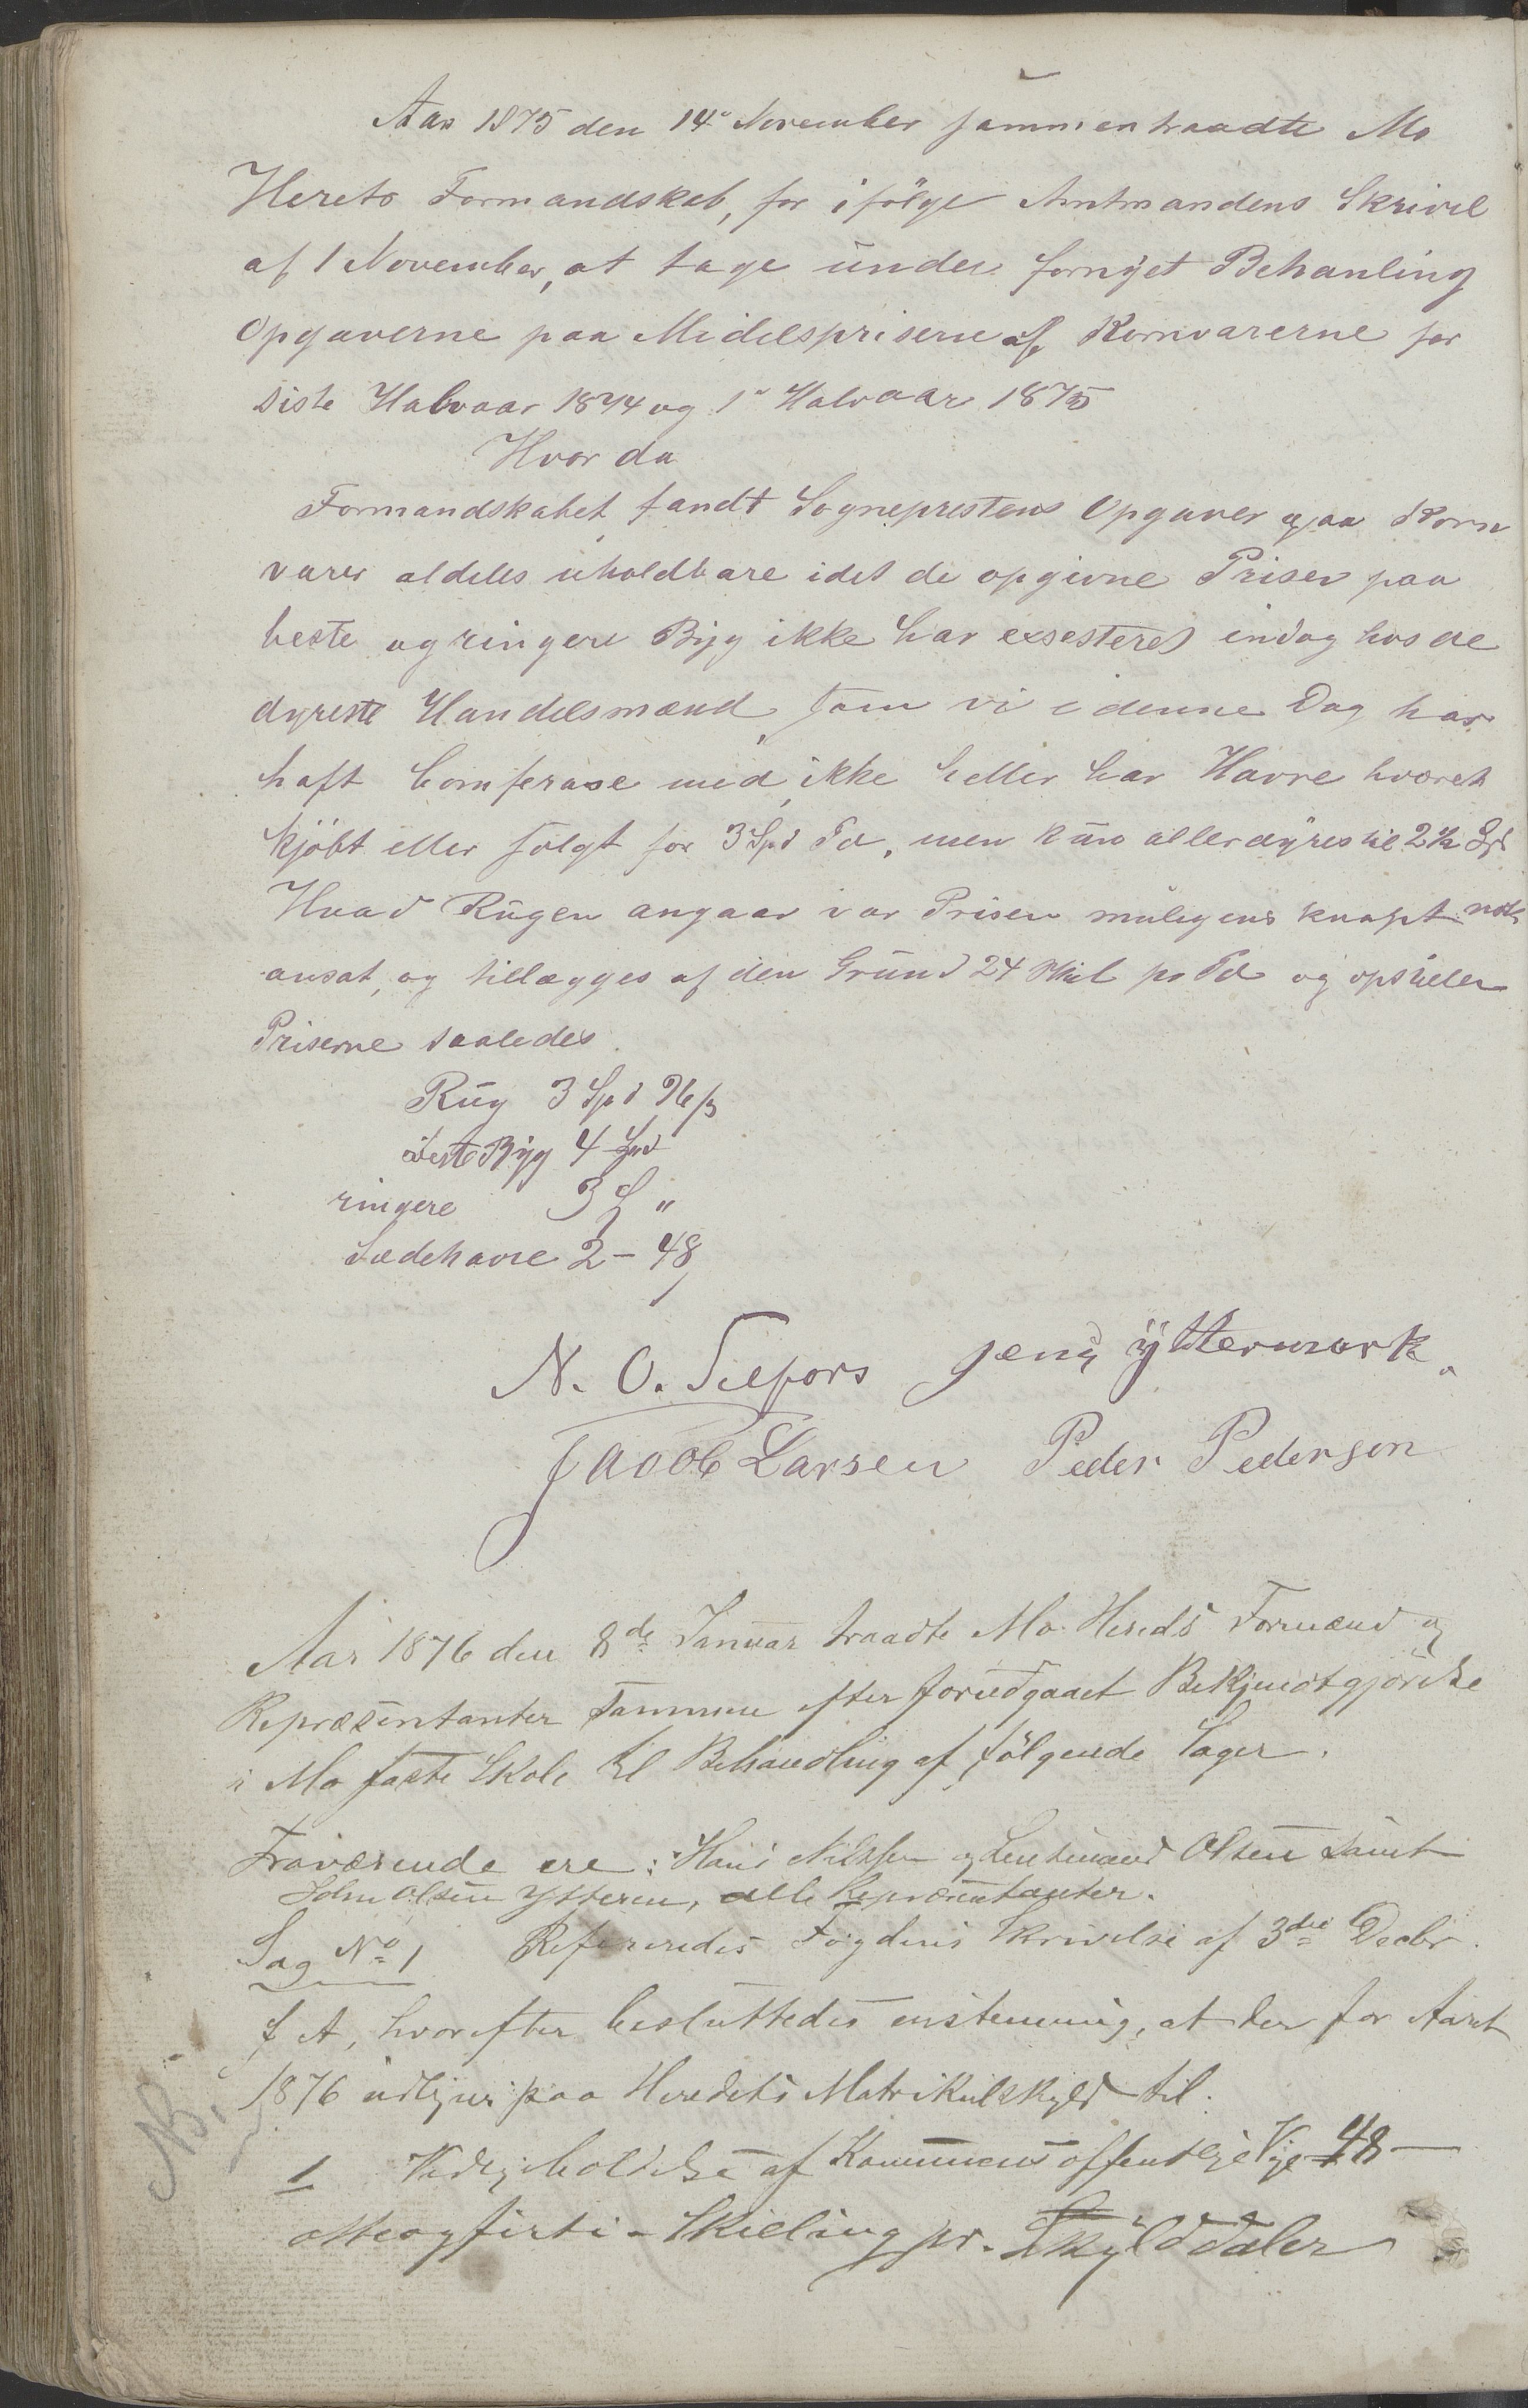 Aar 1875 den 14de November sammentraadte Mo
Herets Formandskab, for ifölge Amtmandens Skrivel
af 1 November, at tage under fornyet Behanling
Opgaverne paa Midelspriserne af Kornvarerne for
siste Halvaar 1874 og 1ste Halvaar 1875
Hvor da
Formandskabet fandt Sogneprestens Opgaver paa Korn
varer aldeles uholdbare idet de opgivne Priser paa
beste og ringere Byg ikke har exsesteret endog hos de
dyreste Handelsmænd, som vi i denne Dag har
haft Comferase med, ikke heller har Havre hværet
kjöbt eller solgt for 3 Spd Td, men kun allerdyrest til 2 1/2 Spd
Hvad Rugen angaar var Prisen muligens knapt nok
ansat, og tillægges af den Grund 24 Skil pr Td og opstilles
Priserne saaledes
Rug 3 Spd 96 ß
beste Byg 4 Spd
ringere 3 S "
Sædehavre 2 - 48
N. O. Selfors Jens Yttermark.
Jacob Larsen Peder Pederson
Aar 1876 den 8de Januar traadte Mo Hereds Formænd og
Repræsentanter sammen efter forudgaaet Bekjendtgjörelse
i Mo faste Skole til Behandling af fölgende Sager.
Fraværende ere: Hans Nilssen og Lensmand Olsen samt
John Olsen Ytteren, alle Repræsentanter.
Sag No 1 Refereredes Fogdens Skrivelse af 3die Decbr.
f A, hvorefter besluttedes enstemmig, at der for Aaret
1876 udlignes paa Heredets Matrikulskyld til.
1 Vedligeholdelse af Kommunens offentlige Veje 48 —
otteogfirti - Skilling pr. Skylddaler
NB.